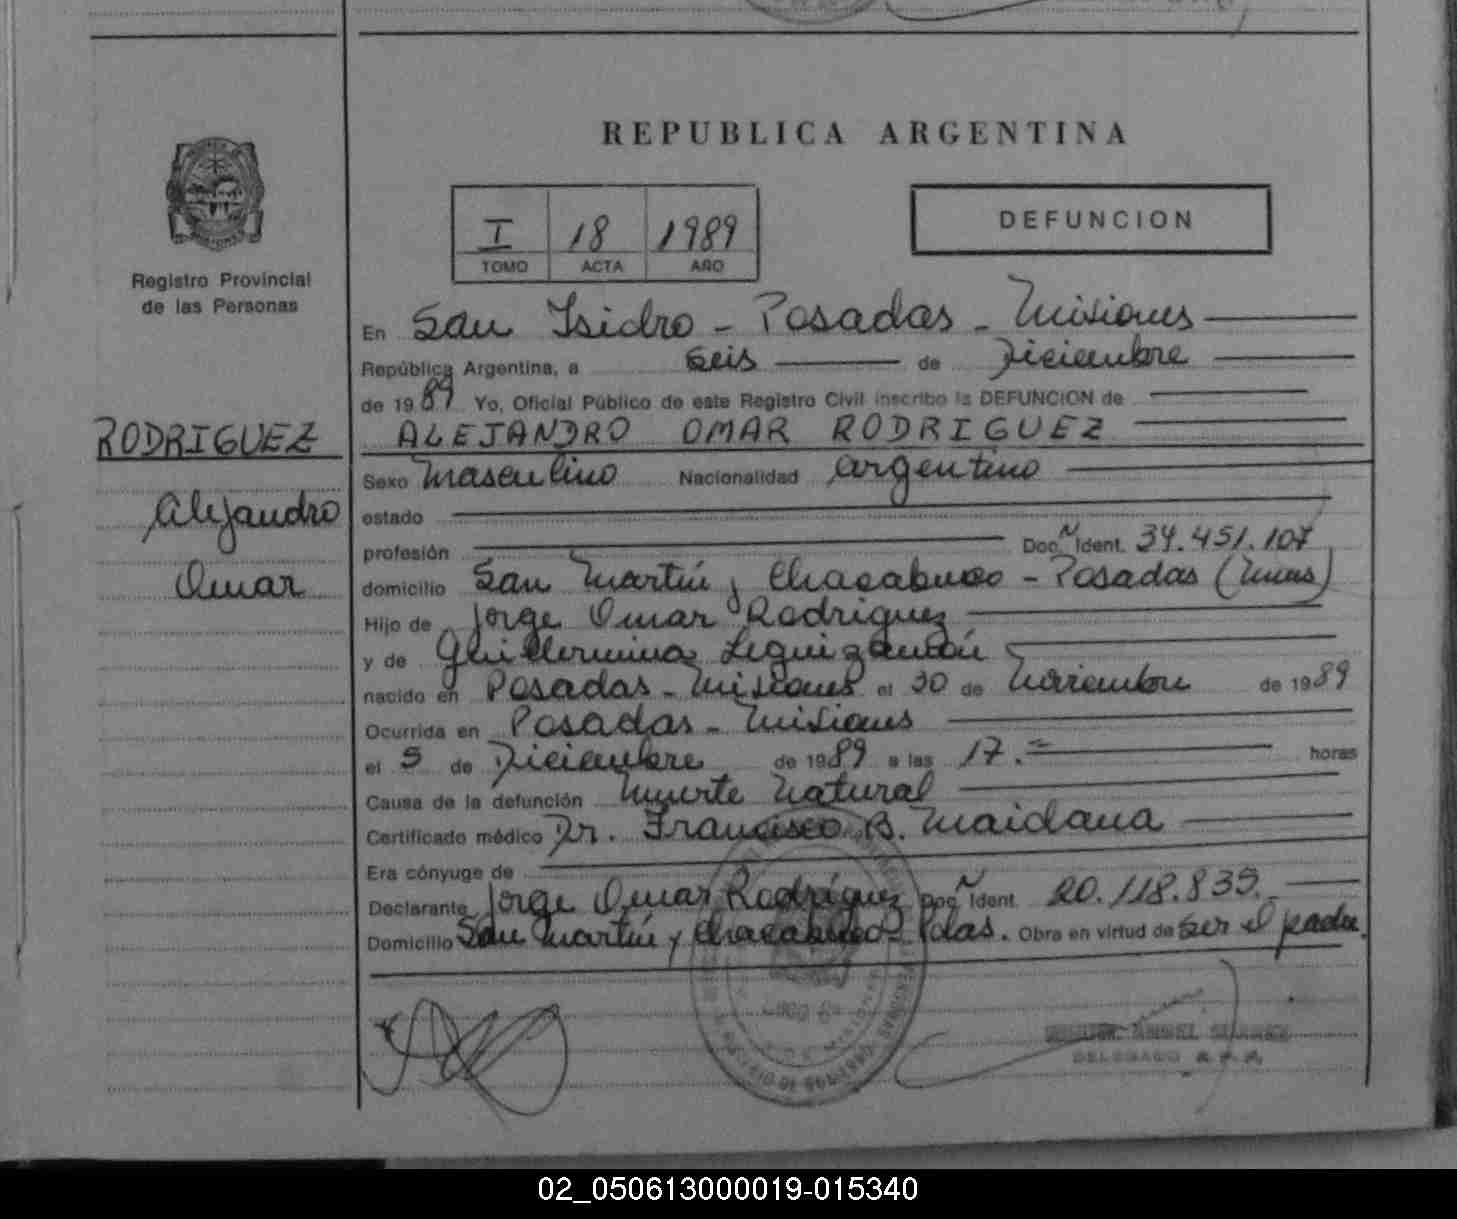 REPUBLICA ARGENTINA
I 18 1989
TOMO ACTA AÑO
DEFUNCION
Registro Provincial
de las Personas
RODRIGUEZ
Alejandro
Omar
En San Isidro - Posadas - Misiones
República Argentina, a seis de Diciembre
de 1989 Yo, Oficial Público de este Registro Civil inscribo la DEFUNCION de
ALEJANDRO OMAR RODRIGUEZ
Sexo Masculino Nacionalidad argentino
estado
profesión Doc. Ident. 34.451.107
domicilio San Martín y Chacabuco - Posadas (Mnes)
Hijo de Jorge Omar Rodriguez
y de Guillermina Leguizamón
nacido en Posadas - Misiones el 30 de Noviembre de 1989
Ocurrida en Posadas - Misiones
el 5 de Diciembre de 1989 a las 17.= horas
Causa de la defunción Muerte Natural
Certificado médico Dr. Francisco B. Maidana
Era cónyuge de
Declarante Jorge Omar Rodríguez Doc. Ident. 20.118.835.
Domicilio San Martín y Chacabuco - Pdas. Obra en virtud de ser el padre.
DELEGADO R.P.P.
02_050613000019-015340